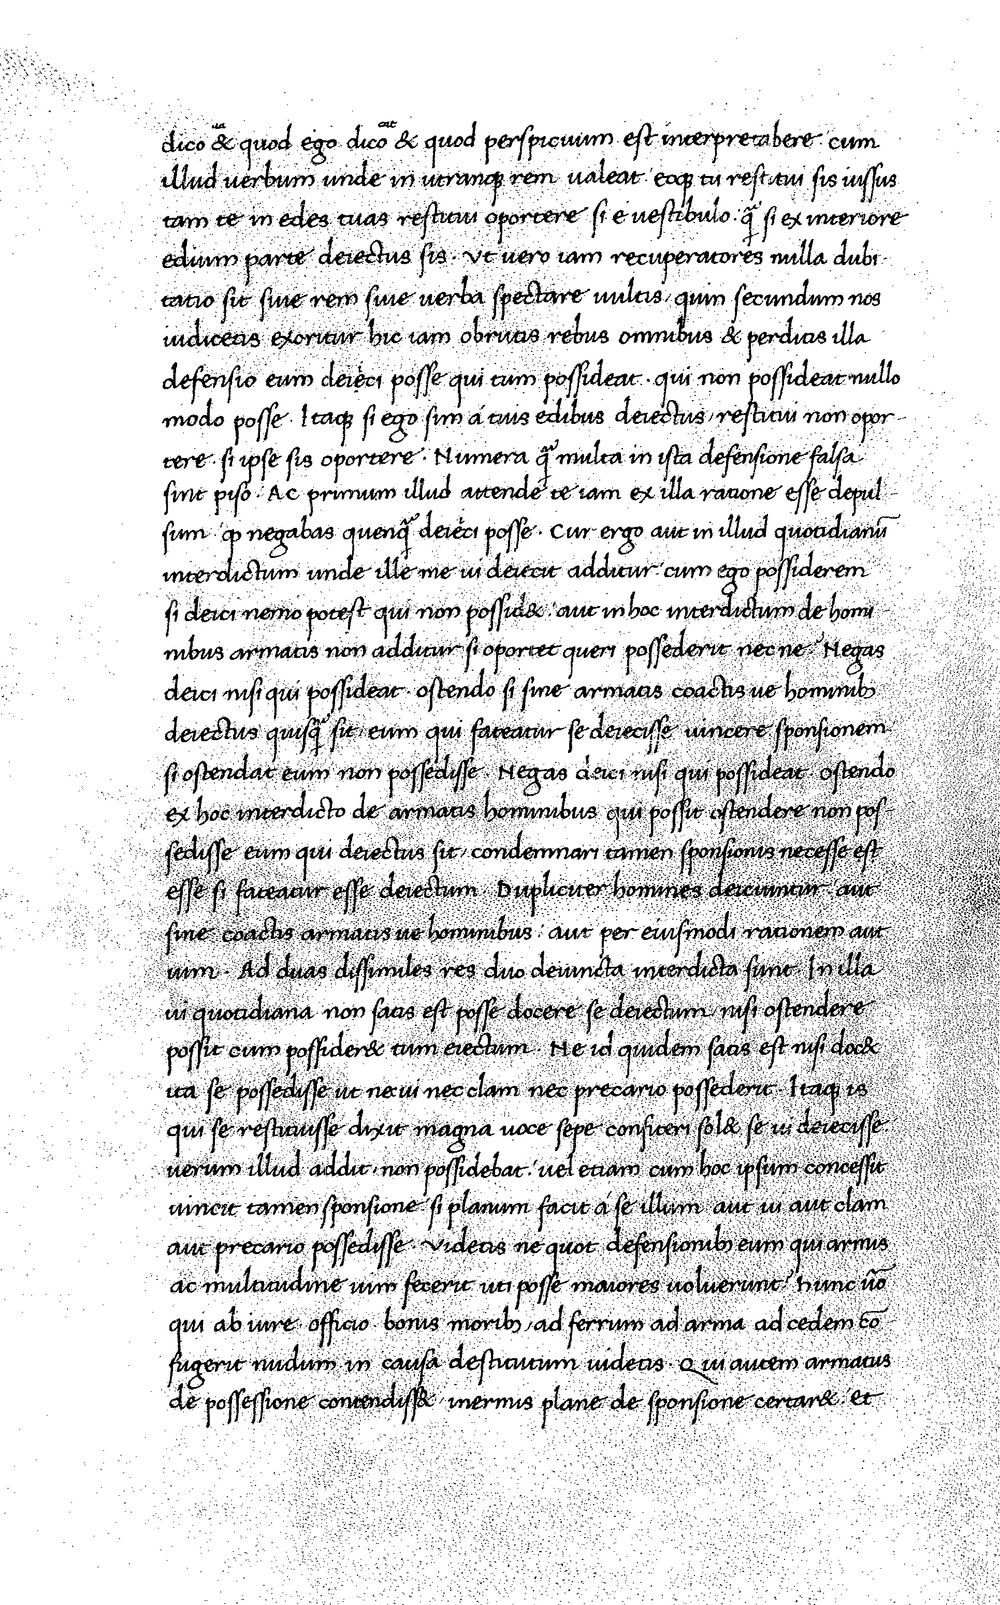 dico & quod ego dico & quod perspicuum est interpretabere cum
illud uerbum unde in utranqꝫ rem ualeat eoqꝫ tu restitui sis iussus
tam te in edes tuas restitui oportere si e uestibulo. qᷓ si ex interiore
edium parte deiectus sis. Vt uero iam recuperatores nulla dubi-
tatio sit siue rem siue uerba spectare uultis, quin secundum nos
iudicetis exoritur hic iam obrutis rebus omnibus & perditis illa
defensio eum deieci posse qui tum possideat. qui non possideat nullo
modo posse. Itaqꝫ si ego sim a tuis edibus deiectus, restitui non opor-
tere. si ipse sis oportere. Numera qᷓ multa in ista defensione falsa
sint piso. Ac primum illud attende te iam ex illa ratione esse depul-
sum ꝙ negabas quenqᷓ deieci posse. Cur ergo aut in illud quotidianū
interdictum unde ille me ui deiecit additur cum ego possiderem
si deici nemo potest qui non possid&. aut in hoc interdictum de homi
nibus armatis non additur si oportet queri possederit nec ne. Negas
deici nisi qui possideat. ostendo si sine armatis coactis ue hominibꝫ
deiectus quisqᷓ sit, eum qui fateatur se deiecisse uincere sponsionem
si ostendat eum non possedisse. Negas deici nisi qui possideat. ostendo
ex hoc interdicto de armatis hominibus qui possit ostendere non pos-
sedisse eum qui deiectus sit, condemnari tamen sponsionis necesse est
esse si fateatur esse deiectum. Dupliciter homines deiciuntur. aut
sine coactis armatis ue hominibus. aut per eiusmodi rationem aut
uim. Ad duas dissimiles res duo deiuncta interdicta sunt. In illa
ui quotidiana non satis est posse docere se deiectum, nisi ostendere
possit cum possider& tum eiectum. Ne id quidem satis est nisi doc&
ita se possedisse ut nec ui nec clam nec precario possederit. Itaqꝫ is
qui se restituisse dixit magna uoce sepe confiteri sol& se ui deiecisse
uerum illud addit, non possidebat. uel etiam cum hoc ipsum concessit
uincit tamen sponsione si planum facit a se illum aut ui aut clam
aut precario possedisse. Videtis ne quot defensionibꝫ eum qui armis
ac multitudine uim fecerit uti posse maiores uoluerunt. hunc ūo
qui ab iure. officio. bonis moribꝫ, ad ferrum ad arma ad cedem cō
fugerit nudum in causa destitutum uidetis. Qui autem armatus
de possessione contendiss& inermis plane de sponsione certar&. et